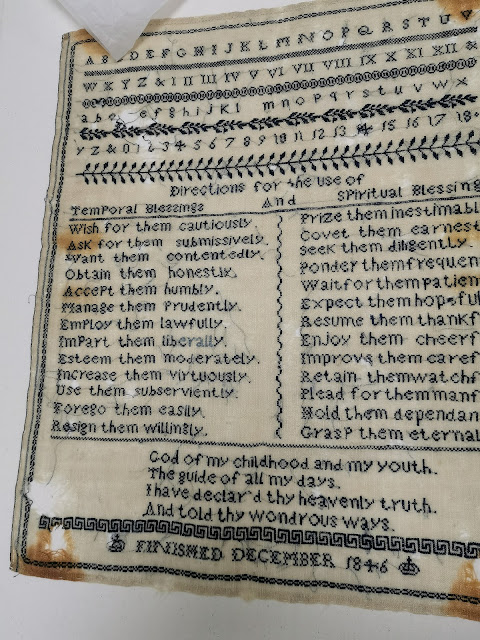 A B C D E F G H I J K L M N O P Q R S T U V
W X Y Z & I II III IV V VI VII VIII IX X XI XII &
a b c e f g h i j k l m n o p q r s t u v w x
y z & 0 1 2 3 4 5 6 7 8 9 10 11 12 13 14 15 16 17 18
Directions for the use of
Temporal Blessings And Spiritual Blessing
Wish for them cautiously.
Ask for them submissively.
Want them contentedly.
Obtain them honestly.
Accept them humbly.
Manage them Prudently.
Employ them lawfully.
Impart them liberally.
Esteem them moderately.
Increase them virtuously.
Use them subserviently.
Forego them easily.
Resign them willingly.
Prize them inestimabl
Covet them earnest
Seek them diligently.
Ponder them frequen
Wait for them Patien
Expect them hopeful
Resume them thankf
Enjoy them cheerf
Improve them caref
Retain them watchf
Plead for them manf
Hold them dependan
Grasp them eternal
God of my childhood and my youth.
The guide of all my days.
I have declar'd thy heavenly truth.
And told thy wondrous ways.
FINISHED DECEMBER 1846